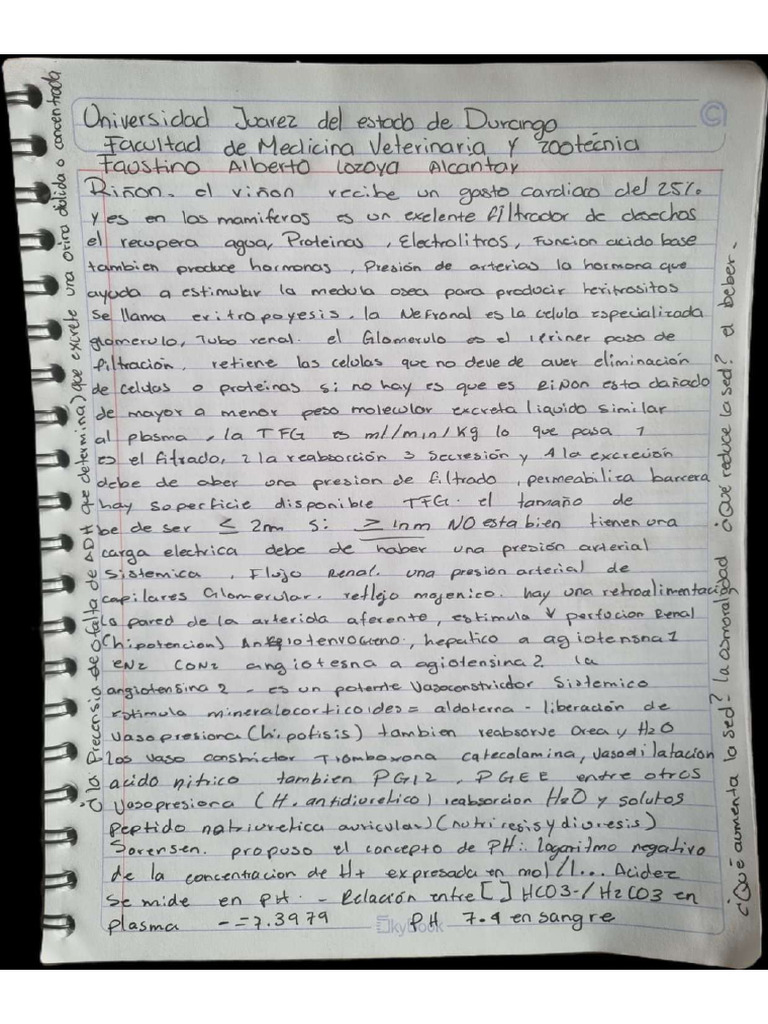 Universidad Juarez del estado de Durango
Facultad de Medicina Veterinaria y zootécnia
Faustino Alberto Lozoya Alcantar
Riñon. el riñon recibe un gasto cardiaco del 25%
y es en los mamiferos es un exelente filtrador de desechos
el recupera agua, Proteinas, Electrolitros, Funcion acido base
tambien produce hormonas, Presión de arterias la hormona que
ayuda a estimular la medula osea para producir heritrositos
se llama eritropoyesis. la Nefronal es la celula especializada
glomerulo, Tubo renal. el Glomerulo es el primer paso de
filtración, retiene las celulas que no deve de aver eliminación
de celulas o proteinas si no hay es que es RiÑON esta dañado
de mayor a menor peso molecular excreta liquido similar
al plasma, la TFG es ml/min/kg lo que pasa 1
es el fitrado, 2 la reabsorción 3 secresión y 4 la excreción
debe de aber una presion de filtrado, permeabiliza barrera
hay soperficie disponible TFG. el tamaño de
be de ser ≤ 2nm si ≥ 1nm NO esta bien tienen una
carga electrica debe de haber una presión arterial
sistemica, Flujo Renal. una presion arterial de
capilares Glomerular. reflejo mojenico. hay una retroalimentacion
La pared de la arterida aferente, estimula ↓ perfucion Renal
(hipotencion) Angiotenvogeno, hepatico a agiotensna 1
eNz CONz angiotesna a agiotensina 2 la
angiotensina 2 - es un potente vasoconstrictor Sistemico
estimula mineralocorticoides = aldoterna - liberación de
vasopresiona (hipofisis) tambien reabsorve Orea y H2O
los vaso constrictor Tromboxona catecolamina, vasodilatacion
acido nitrico tambien PGI2, PGEE entre otros
Vasopresiona (H. antidiuretico) reabsorcion H2O y solutos
peptido natriuretica auricular) (nutriresis y diuresis)
Sorensen. propuso el concepto de PH: logaritmo negativo
de la concentracion de H+ expresada en mol/l... Acidez
se mide en PH. - Relación entre [ ] HCO3-/H2CO3 en
plasma - = 7.3979 PH 7.4 en sangre
Skybook
¿la Precensia de o falta de ADH que determina) que excrete una orina diluida o concentrada
¿Qué aumenta la sed? la osmoralidad ¿Qué reduce la sed? el beber.